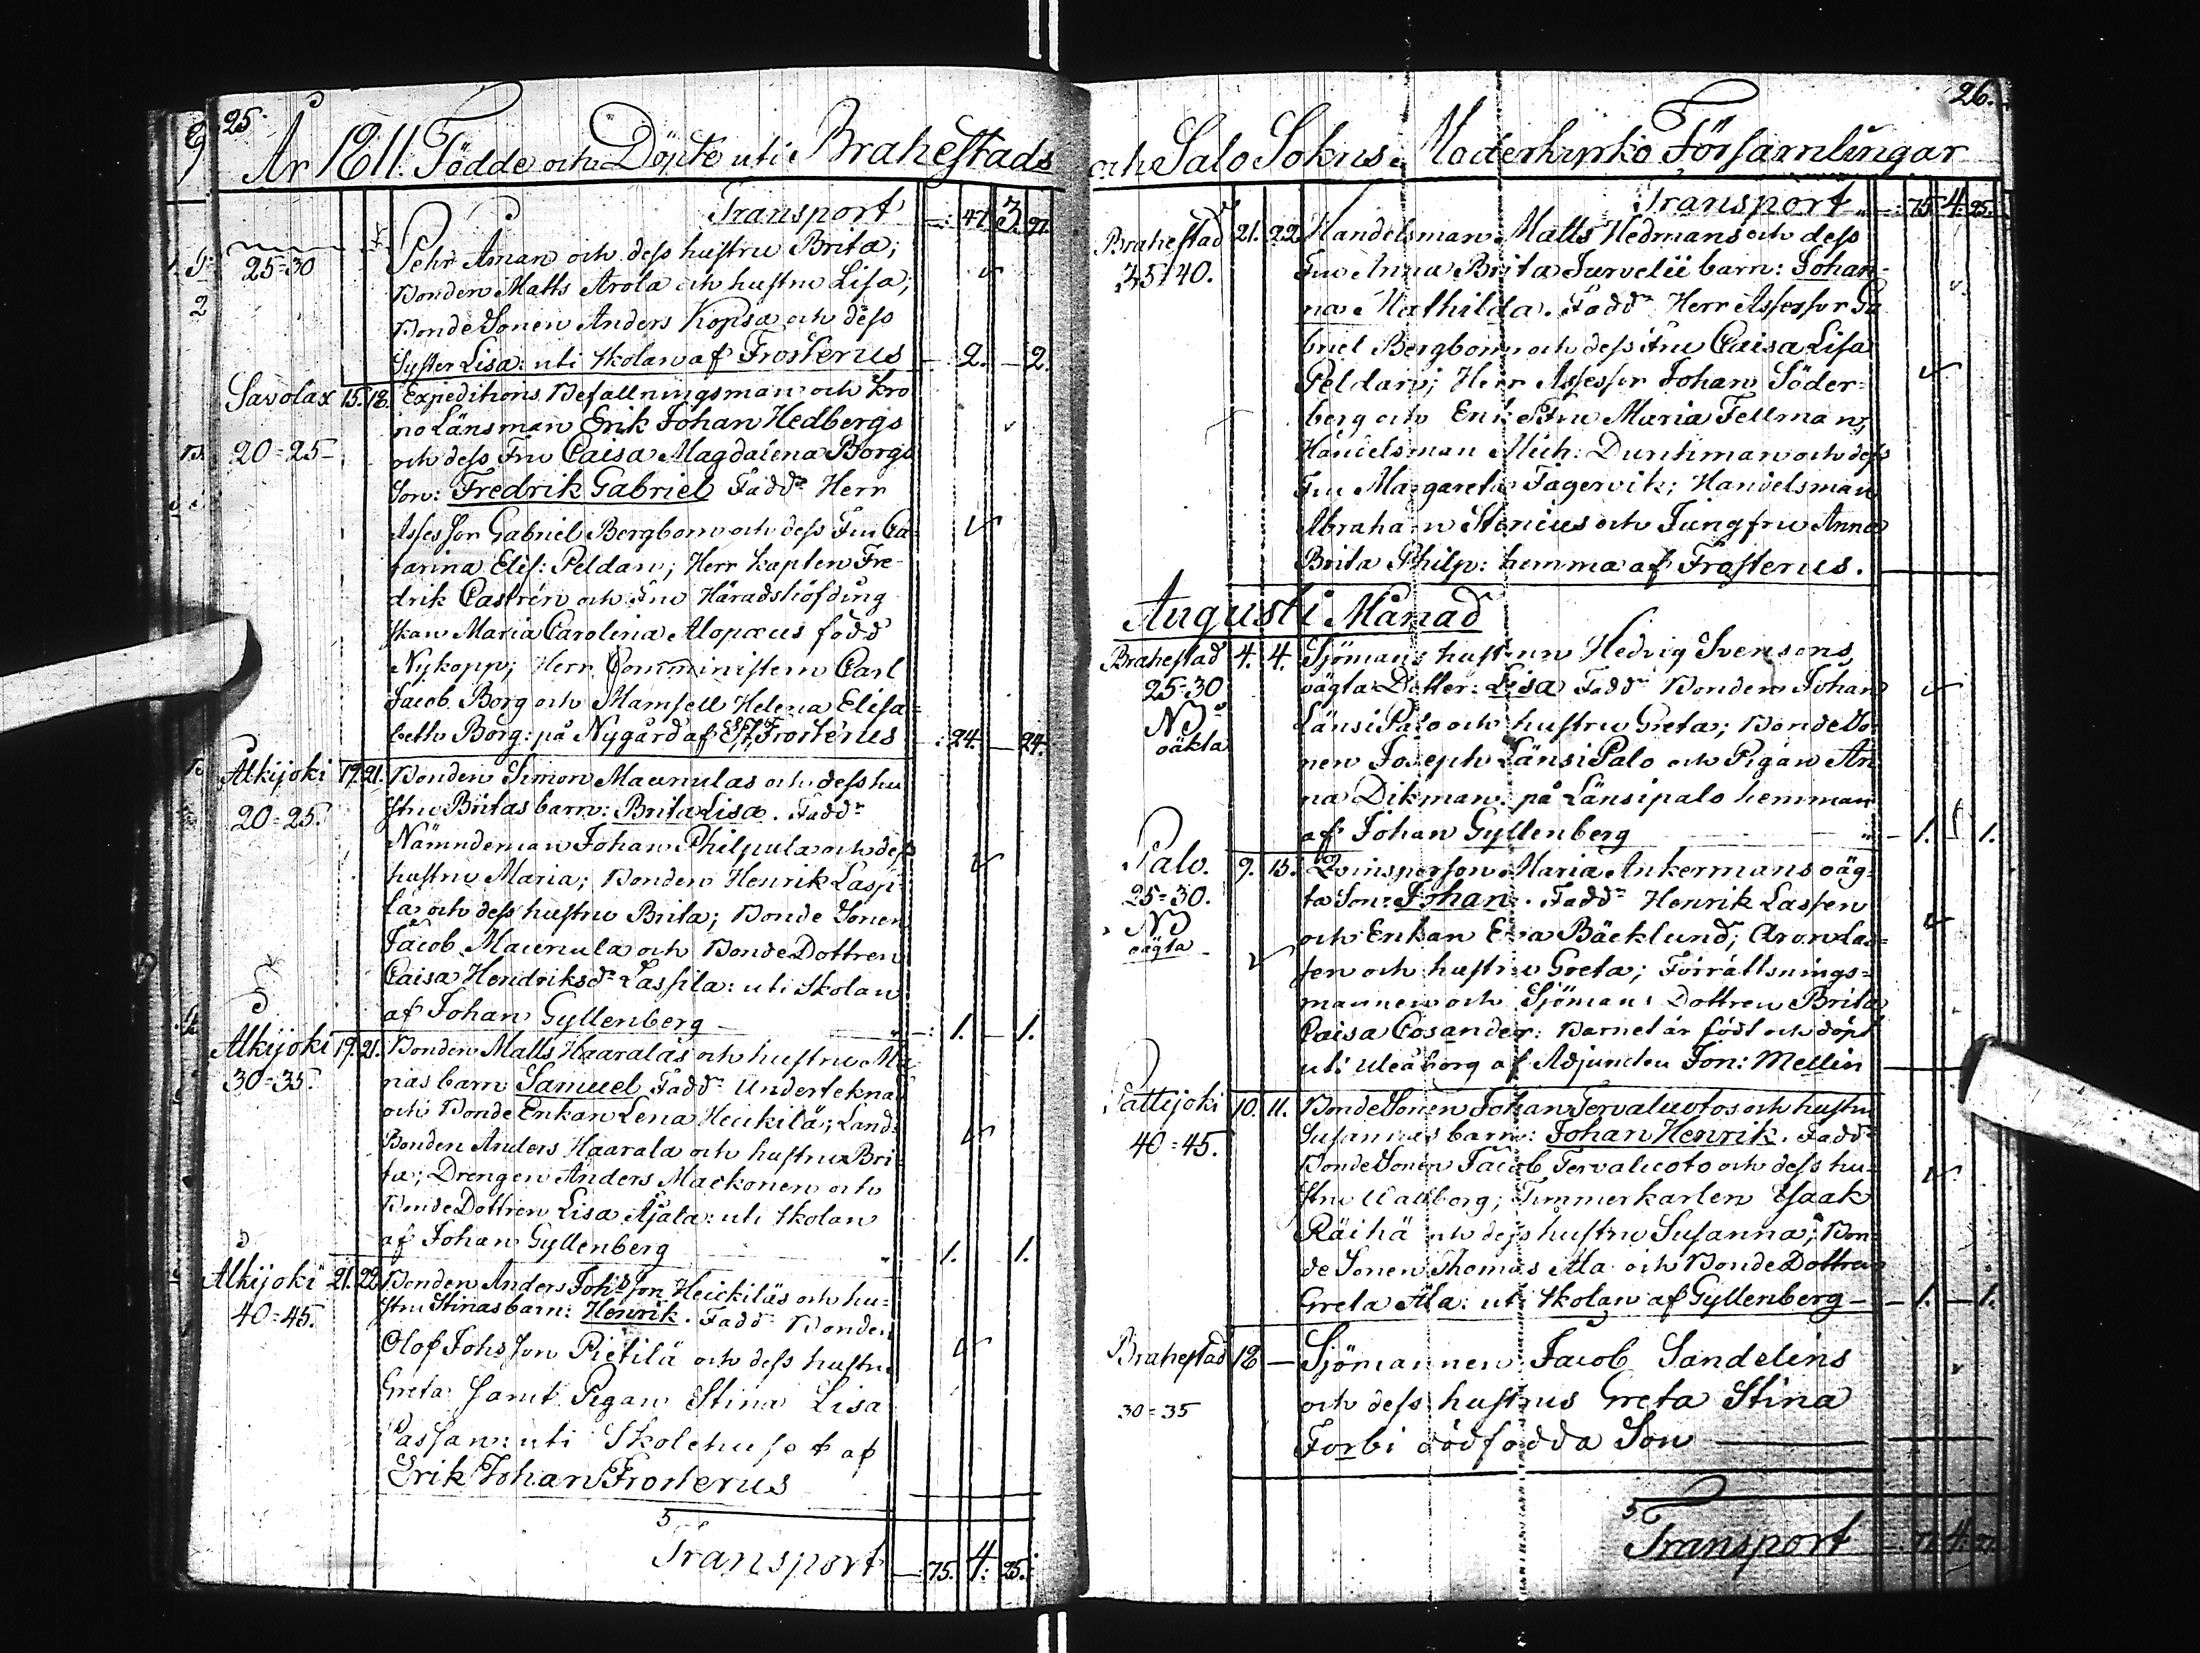 25.
År 1811. Födde och Döpte uti Brahestads
Transport -: 47. 3. 27.
25=30 Pehr Åman och dess hustru Brita;
Bonden Matts Arola och hustru Lisa;
BondeSonen Anders Kopsa och dess
Syster Lisa: uti skolan af Frosterus -: 2. - 2.
Savolax 15. 18. Expeditions Befallningsman och Kro
no Länsman Erik Johan Hedbergs
20=25 och dess Fru Caisa Magdalena Borgs
Son: Fredrik Gabriel Fadd:r Herr
Assessor Gabriel Bergbom och dess Fru Ca=
tarina Elis: Peldan; Herr Kapten Fre
drik Castrén och Fru Häradshöfding
skan Maria Carolina Alopæus född
Nykopp; Herr Comministern Carl
Jacob Borg och Mamsell Helena Elisa=
beth Borg: på Nygård af Frosterus -: 24. - 24.
Alkijoki 19. 21. Bonden Simon Maunulas och dess hu
20=25. stru Britas barn: Brita Lisa. Fadd:r
Nämndeman Johan Philpula och dess
hustru Maria; Bonden Henrik Lassi
la och dess hustru Brita; Bonde Sonen
Jacob Maunula och BondeDottren
Caisa Hendriksd:r Lassila: uti Skolan
af Johan Gyllenberg -: 1. - 1.
Alkijoki 19. 21. Bonden Matts Haaralas och hustru Ma
30=35. rias barn Samuel Fadd:r Underteknad
och Bonde Enkan Lena Heickilä; Land=
Bonden Anders Haarala och hustru Bri=
ta; Drengen Anders Mackonen och
BondeDottren Lisa Ajala: uti skolan
af Johan Gyllenberg 1. 1.
Alkijoki 21. 22. Bonden Anders Joh:sson Heickiläs och hu=
40=45. stru Stinas barn: Henrik. Fadd:r Bonden
Olof Johsson Pietilä och dess hustru
Greta samt Pigan Stina Lisa
Passan: uti Skolehuset af
Erik Johan Frosterus
5
Transport -: 75. 4: 25.
26.
och Salo Sokns Moderkyrko Församlingar
Transport -: 75. 4. 25.
Brahestad 21. 22. Handelsman Matts Hedmans och dess
35/40. Fru Anna Brita Jurvelii barn: Johan=
na Mathilda. Fadd:r Herr Assessor Ga
briel Bergbom och dess Fru Caisa Lisa
Peldan; Herr Assessor Johan Söder=
berg och Enke Fru Maria Fellman;
Handelsman Mich: Durchman och dess
Fru Margareta Fagervik; Handelsman
Abraham Stenius och Jungfru Anna
Brita Philp: hemma af Frosterus.
Augusti Månad
Brahestad 4. 4. Sjömans hustrun Hedvig Svensons
25=30 oägta Dotter: Lisa Fadd:r Bonden Johan
NB oäkta LänsiPalo och hustru Greta; BondeSo
nen Joseph LänsiPalo och Pigan An
na Dikman: på Länsipalo hemman
af Johan Gyllenberg - 1. 1.
Salo. 9. 15. Qvinsperson Maria Ankermans oäg
25=30. ta Son: Johan. Fadd:r Henrik Lassen
NB oägta och Enkan Eva Bäcklund; Aron Las=
sen och hustru Greta; Förrättnings=
mannen och Sjömans Dottren Brita
Caisa Cosander: Barnet är födt och döpt
uti Uleåborg af Adjuncten Jon: Mellin
Pattijoki 10. 11. BondeSonen Johan Tervaluotos och hustru
40=45. Susannas barn: Johan Henrik. Fadd:r
BondeSonen Jacob Tervaluoto och dess hu=
stru Wallborg; Timmerkarlen Isaak
Räihä och dess hustru Susanna; Bon
de Sonen Thomas Ala och BondeDottren
Greta Ala: uti skolan af Gyllenberg - 1. - 1.
Brahestad 18 - Sjömannen Jacob Sandelins
30=35 och dess hustrus Greta Stina
Forbi dödfödda Son
5
Transport